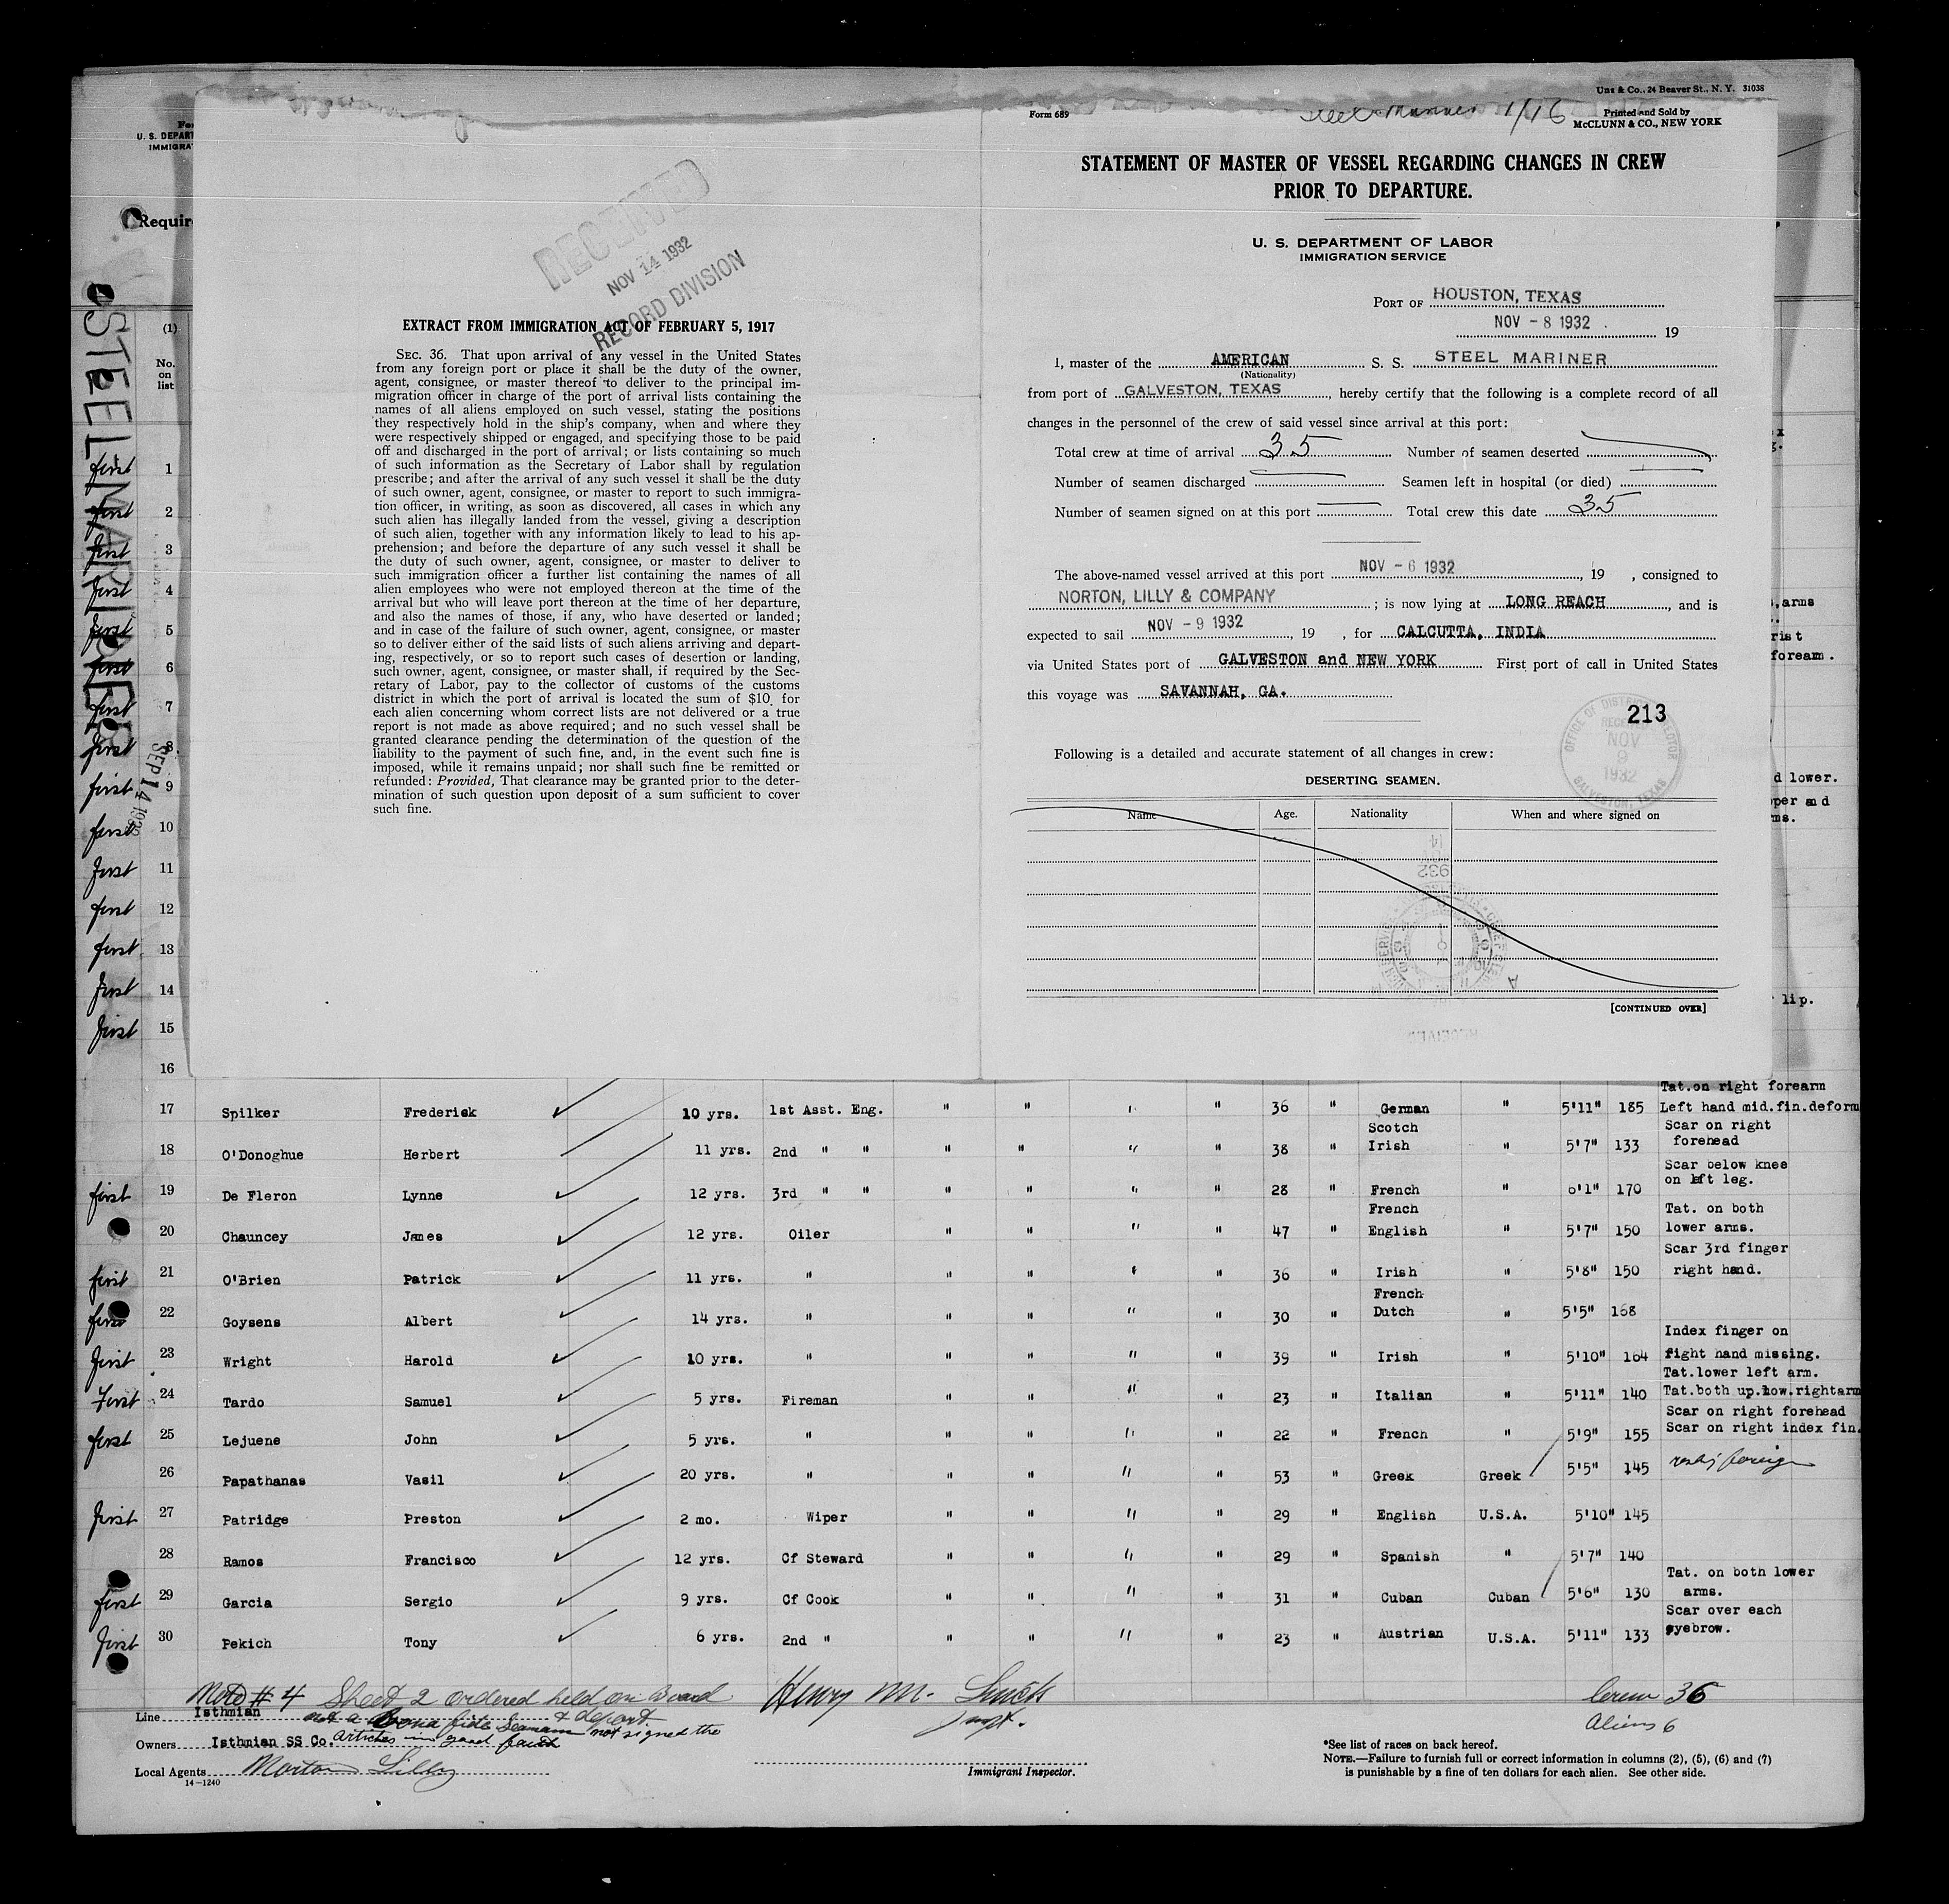 Uns & Co., 24 Beaver St., N. Y. 31038
Form 689
Steel Mariner 1/16
Printed and Sold by
McCLUNN & CO., NEW YORK
STATEMENT OF MASTER OF VESSEL REGARDING CHANGES IN CREW
PRIOR TO DEPARTURE.
U. S. DEPARTMENT OF LABOR
IMMIGRATION SERVICE
PORT OF HOUSTON, TEXAS
NOV - 8 1932 19
I, master of the AMERICAN S. S. STEEL MARINER
(Nationality)
from port of GALVESTON, TEXAS, hereby certify that the following is a complete record of all
changes in the personnel of the crew of said vessel since arrival at this port:
Total crew at time of arrival 35 Number of seamen deserted
Number of seamen discharged Seamen left in hospital (or died)
Number of seamen signed on at this port Total crew this date 35
The above-named vessel arrived at this port NOV - 6 1932, 19 , consigned to
NORTON, LILLY & COMPANY; is now lying at LONG REACH, and is
expected to sail NOV - 9 1932, 19 , for CALCUTTA, INDIA
via United States port of GALVESTON and NEW YORK First port of call in United States
this voyage was SAVANNAH, GA.
213
OFFICE OF DISTRICT DIRECTOR
RECEIVED
NOV
9
1932
GALVESTON, TEXAS
Following is a detailed and accurate statement of all changes in crew:
DESERTING SEAMEN.
Name Age. Nationality When and where signed on
[CONTINUED OVER]
RECEIVED
NOV 14 1932
RECORD DIVISION
EXTRACT FROM IMMIGRATION ACT OF FEBRUARY 5, 1917
SEC. 36. That upon arrival of any vessel in the United States
from any foreign port or place it shall be the duty of the owner,
agent, consignee, or master thereof to deliver to the principal im-
migration officer in charge of the port of arrival lists containing the
names of all aliens employed on such vessel, stating the positions
they respectively hold in the ship's company, when and where they
were respectively shipped or engaged, and specifying those to be paid
off and discharged in the port of arrival; or lists containing so much
of such information as the Secretary of Labor shall by regulation
prescribe; and after the arrival of any such vessel it shall be the duty
of such owner, agent, consignee, or master to report to such immigra-
tion officer, in writing, as soon as discovered, all cases in which any
such alien has illegally landed from the vessel, giving a description
of such alien, together with any information likely to lead to his ap-
prehension; and before the departure of any such vessel it shall be
the duty of such owner, agent, consignee, or master to deliver to
such immigration officer a further list containing the names of all
alien employees who were not employed thereon at the time of the
arrival but who will leave port thereon at the time of her departure,
and also the names of those, if any, who have deserted or landed;
and in case of the failure of such owner, agent, consignee, or master
so to deliver either of the said lists of such aliens arriving and depart-
ing, respectively, or so to report such cases of desertion or landing,
such owner, agent, consignee, or master shall, if required by the Sec-
retary of Labor, pay to the collector of customs of the customs
district in which the port of arrival is located the sum of $10 for
each alien concerning whom correct lists are not delivered or a true
report is not made as above required; and no such vessel shall be
granted clearance pending the determination of the question of the
liability to the payment of such fine, and, in the event such fine is
imposed, while it remains unpaid; nor shall such fine be remitted or
refunded: Provided, That clearance may be granted prior to the deter-
mination of such question upon deposit of a sum sufficient to cover
such fine.
U. S. DEPART
IMMIGRA
Requir
STEEL MARINER
SEP 14 1932
(1)
No.
on
list
first 1
first 2
first 3
first 4
first 5
first 6
first 7
first 8
first 9
first 10
first 11
first 12
first 13
first 14
first 15
16
arms
rist
foream.
d lower.
per and
ms.
lip.
Tat.on right forearm
17 Spilker Frederick 10 yrs. 1st Asst. Eng. " " " " 36 " German " 5'11" 185 Left hand mid.fin.deform
Scotch Scar on right
18 O'Donoghue Herbert 11 yrs. 2nd " " " " " " 38 " Irish " 5'7" 133 forehead
Scar below knee
first 19 De Fleron Lynne 12 yrs. 3rd " " " " " " 28 " French " 6'1" 170 on left leg.
French Tat. on both
20 Chauncey James 12 yrs. Oiler " " " " 47 " English " 5'7" 150 lower arms.
Scar 3rd finger
first 21 O'Brien Patrick 11 yrs. " " " " " 36 " Irish " 5'8" 150 right hand.
French
first 22 Goysens Albert 14 yrs. " " " " " 30 " Dutch " 5'5" 168
Index finger on
first 23 Wright Harold 10 yrs. " " " " " 39 " Irish " 5'10" 164 right hand missing.
Tat.lower left arm.
First 24 Tardo Samuel 5 yrs. Fireman " " " " 23 " Italian " 5'11" 140 Tat.both up.low.rightarm
Scar on right forehead
first 25 Lejuene John 5 yrs. " " " " " 22 " French " 5'9" 155 Scar on right index fin.
26 Papathanas Vasil 20 yrs. " " " " " 53 " Greek Greek 5'5" 145 foreign
first 27 Patridge Preston 2 mo. Wiper " " " " 29 " English U.S.A. 5'10" 145
28 Ramos Francisco 12 yrs. Cf Steward " " " " 29 " Spanish " 5'7" 140
Tat. on both lower
first 29 Garcia Sergio 9 yrs. Cf Cook " " " " 31 " Cuban Cuban 5'6" 130 arms.
Scar over each
first 30 Pekich Tony 6 yrs. 2nd " " " " " 23 " Austrian U.S.A. 5'11" 133 eyebrow.
Note # 4 Sheet 2 ordered held on Board
& deport
not a Bona fide Seaman not signed the
Articles in good faith
Henry M.
Inspt.
Crew 36
Aliens 6
Line Isthmian
Owners Isthmian SS Co.
Local Agents Norton Lilly
14-1240
Immigrant Inspector.
*See list of races on back hereof.
NOTE.—Failure to furnish full or correct information in columns (2), (5), (6) and (7)
is punishable by a fine of ten dollars for each alien. See other side.